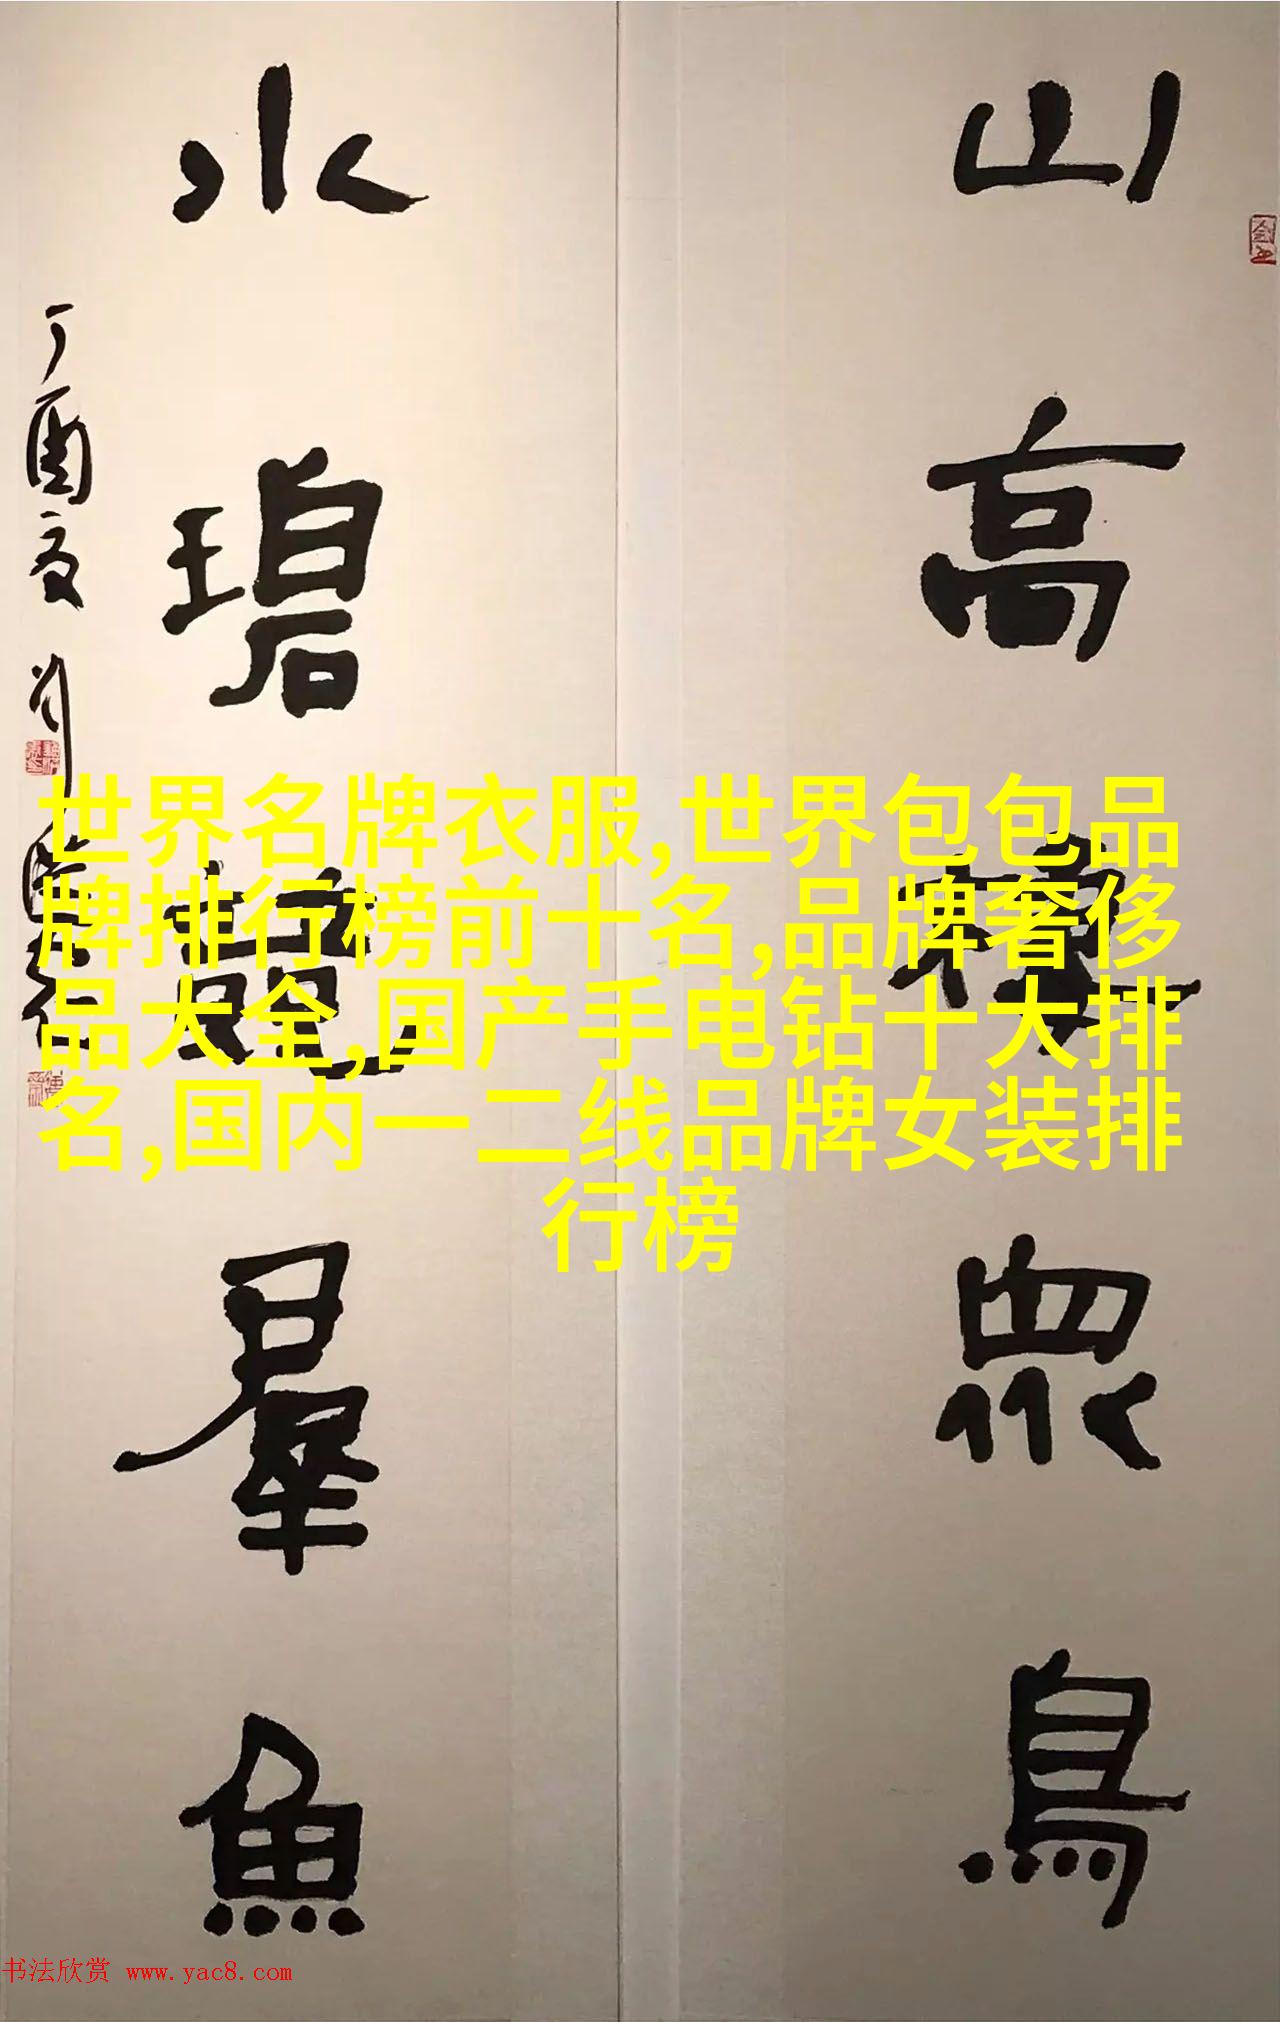 山高棲眾鳥
水碧羣魚
丁酉夏刘
世界名牌衣服,世界包包品
牌排行榜前十名,品牌奢侈
品大全,国产手电钻十大排
名,国内一二线品牌女装排
行榜
书法欣赏 www.yac8.com